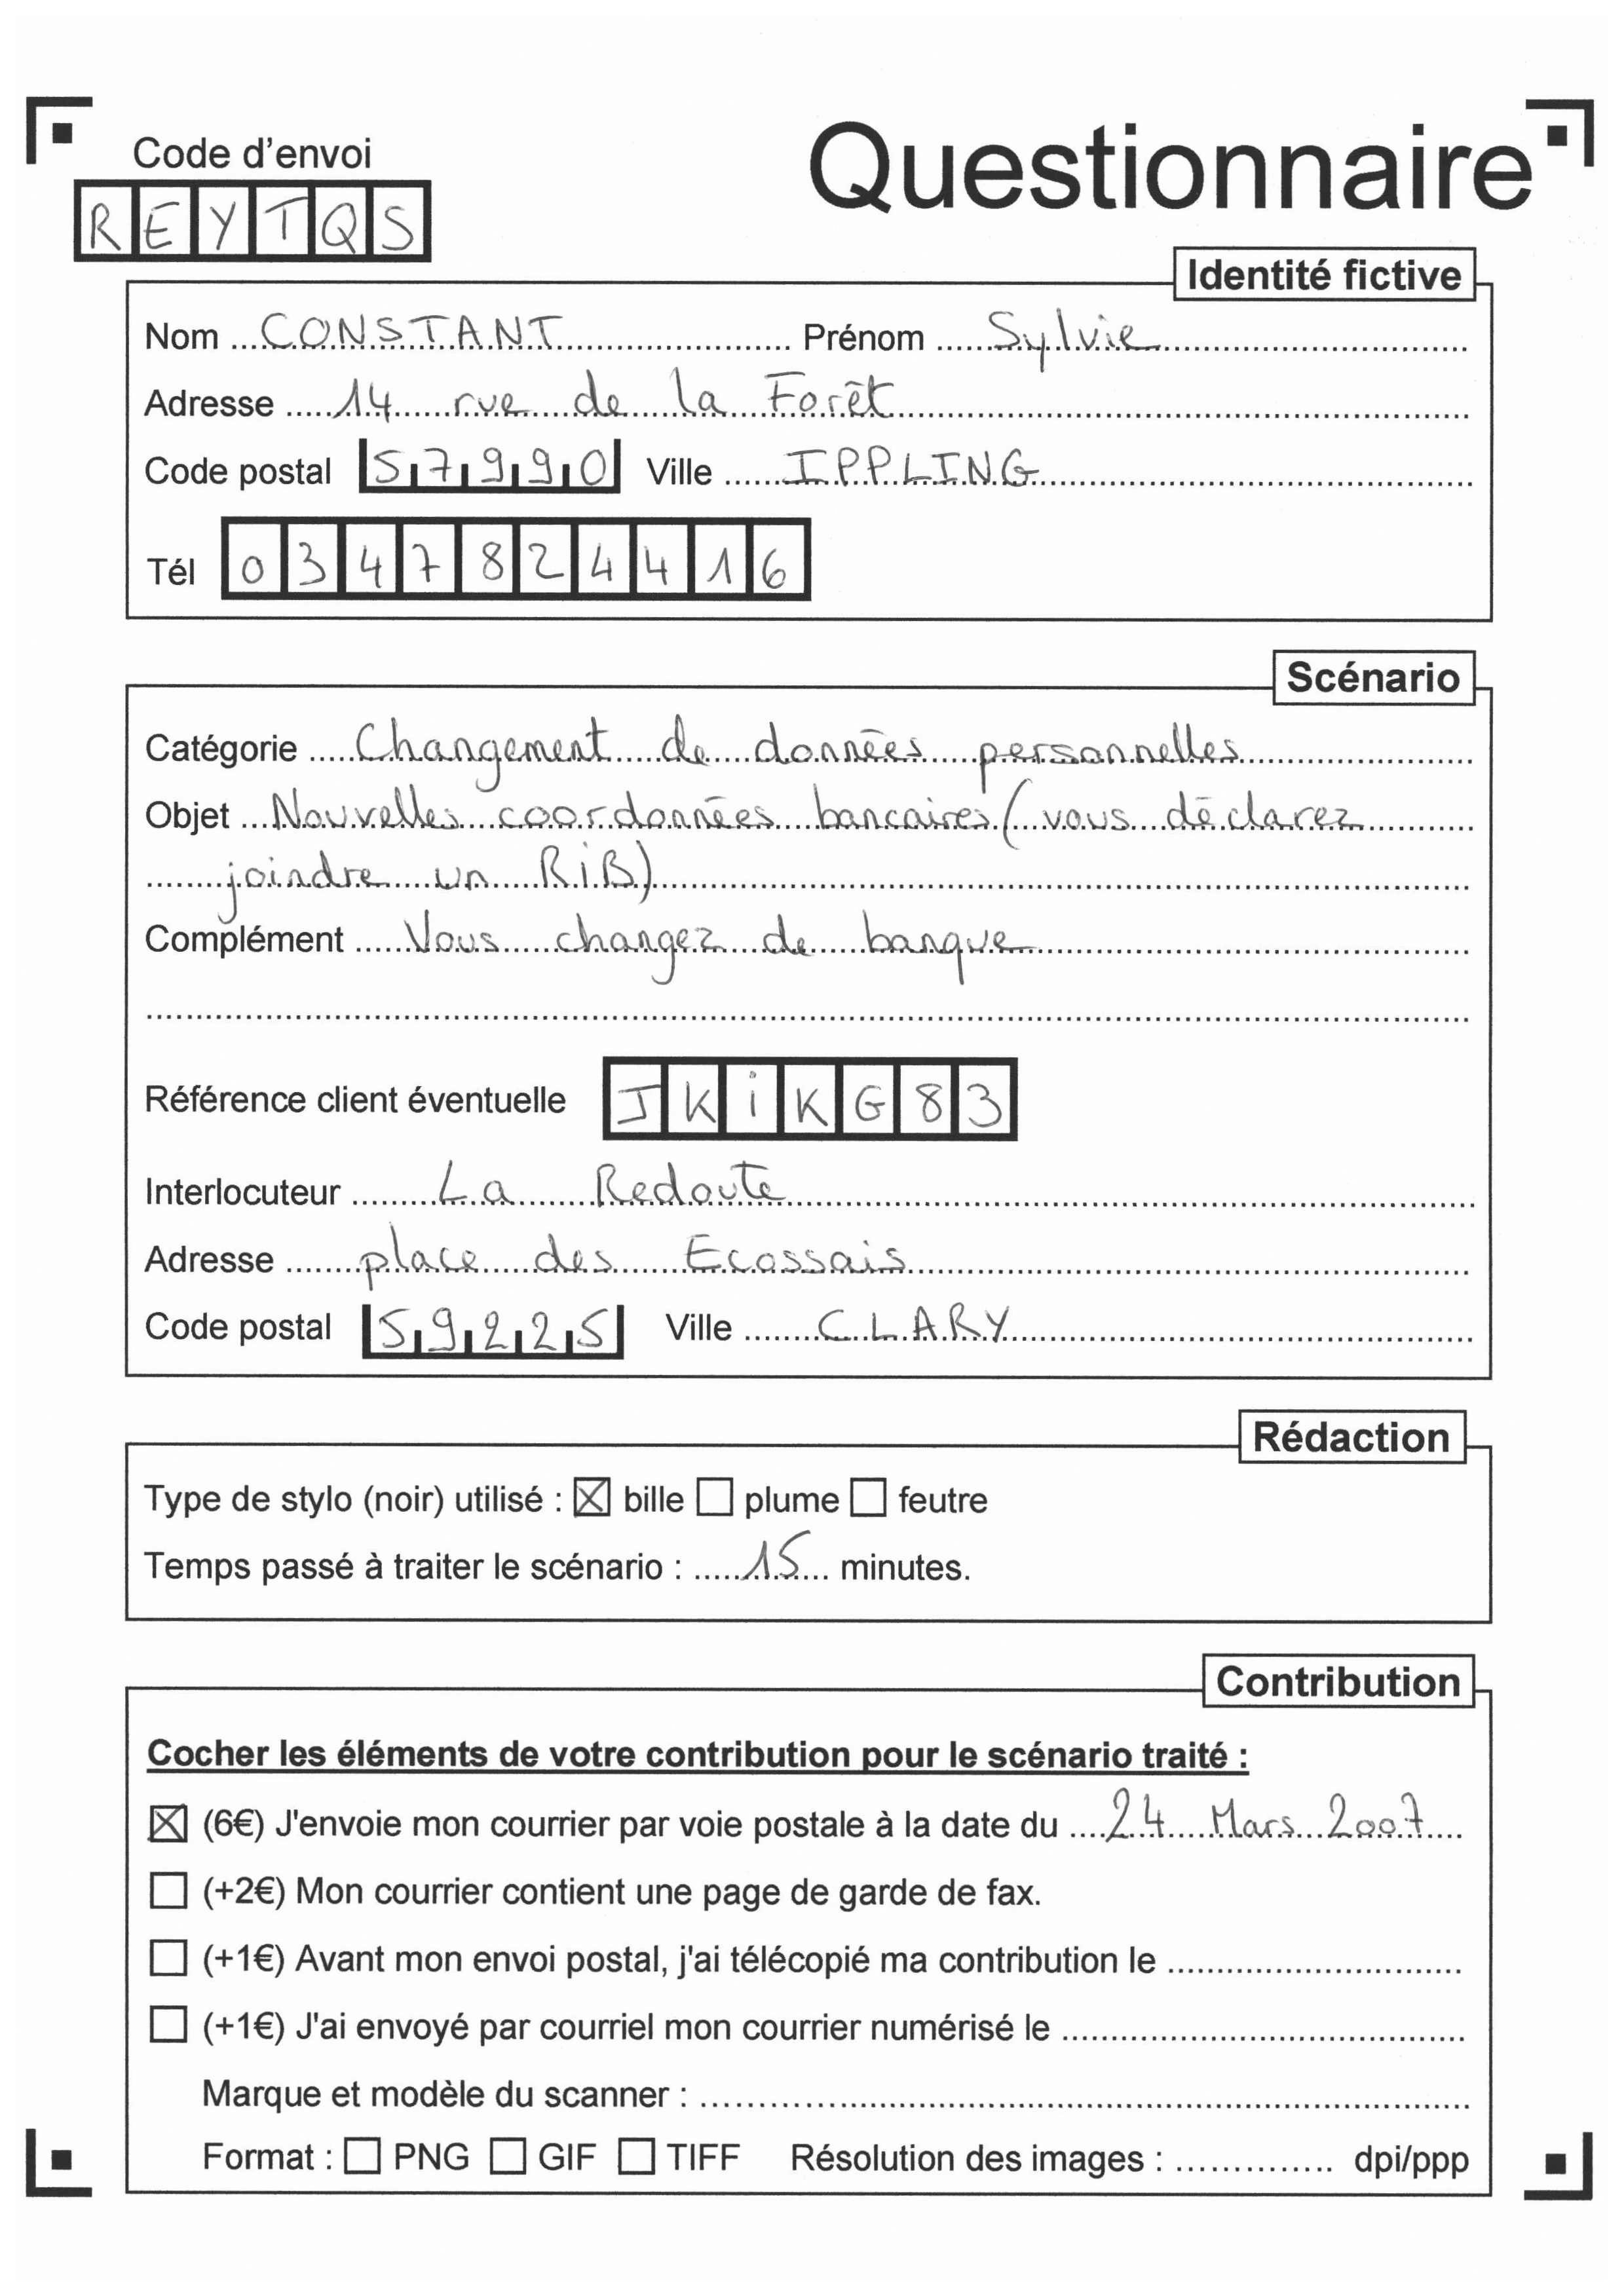 Code d'envoi
Questionnaire
REYTQS
Identité fictive
Nom CONSTANT Prénom Sylvie
Adresse 14 rue de la Forêt
Code postal 57990 Ville IPPLING
Tél 0347824416
Scénario
Catégorie Changement de données personnelles
Objet Nouvelles coordonnées bancaires (vous déclarez
joindre un RiB)
Complément Vous changez de banque
Référence client éventuelle JKiKG83
Interlocuteur La Redoute
Adresse place des Ecossais
Code postal 59225 Ville CLARY
Rédaction
Type de stylo (noir) utilisé : ☒ bille ☐ plume ☐ feutre
Temps passé à traiter le scénario : 15 minutes.
Contribution
Cocher les éléments de votre contribution pour le scénario traité :
☒ (6€) J'envoie mon courrier par voie postale à la date du 24 Mars 2007
☐ (+2€) Mon courrier contient une page de garde de fax.
☐ (+1€) Avant mon envoi postal, j'ai télécopié ma contribution le
☐ (+1€) J'ai envoyé par courriel mon courrier numérisé le
Marque et modèle du scanner :
Format : ☐ PNG ☐ GIF ☐ TIFF Résolution des images : dpi/ppp